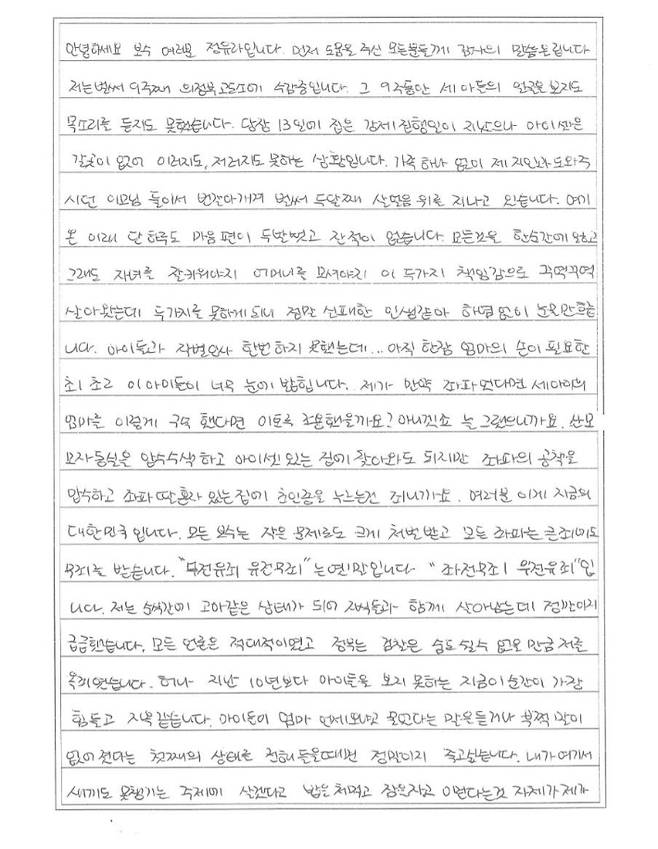 안녕하세요 보수 여러분 정유라입니다. 먼저 도움을 주신 모든분들께 감사의 말씀을 올립니다
저는 벌써 9주째 의정부교도소에 수감중입니다. 그 9주동안 세 아들의 얼굴을 보지도
목소리를 듣지도 못했습니다. 당장 13일에 집은 강제집행일이 지났으나 아이셋은
갈곳이 없어 이러지도, 저러지도 못하는 상황입니다. 가족 하나 없이 제 지인과 도와주
시던 이모님 둘이서 번갈아가며 벌써 두달째 살얼음 위를 지나고 있습니다. 여기
온 이래 단 하루도 마음 편히 두발뻗고 잔적이 없습니다. 모든것을 한순간에 잃고
그래도 자녀를 잘키워야지 어머니를 모셔야지 이 두가지 책임감으로 꾸역꾸역
살아왔는데 두가지를 못하게 되니 정말 실패한 인생같아 하염없이 눈물만흐릅
니다. 아이들과 작별인사 한번 하지 못했는데... 아직 한참 엄마의 손이 필요한
초1 초2 이 아이들이 너무 눈에 밟힙니다. 제가 만약 좌파였다면 세아이의
엄마를 이렇게 구속 했다면 이토록 조용했을까요? 아니겠죠 늘 그랬으니까요. 산모
모자동실은 압수수색하고 아이셋 있는 집에 찾아와도 되지만 좌파의 공책을
압수하고 좌파 딸혼자 있는집에 초인종을 누르는건 죄니까요. 여러분 이게 지금의
대한민국 입니다. 모든 보수는 작은 문제로도 크게 처벌받고 모든 좌파는 큰죄에도
무죄를 받습니다. "무전유죄 유전무죄"는 옛말입니다 "좌전무죄 우전유죄"입
니다. 저는 순식간에 고아같은 상태가 되어 자식들과 함께 살아남는데 정말이지
급급했습니다. 모든 언론은 적대적이었고 정부는 검찰은 숨도 쉴수 없을 만큼 저를
옥죄였습니다. 허나 지난 10년보다 아이들을 보지 못하는 지금이순간이 가장
힘들고 지옥 같습니다. 아이들이 엄마 언제오냐고 울었다는 말을듣거나 부쩍 말이
없어 졌다는 첫째의 상태를 전해 들을때면 정말이지 죽고싶습니다. 내가 여기서
새끼도 못챙기는 주제에 살겠다고 밥을 처먹고 잠을자고 이런다는것 자체가 제가